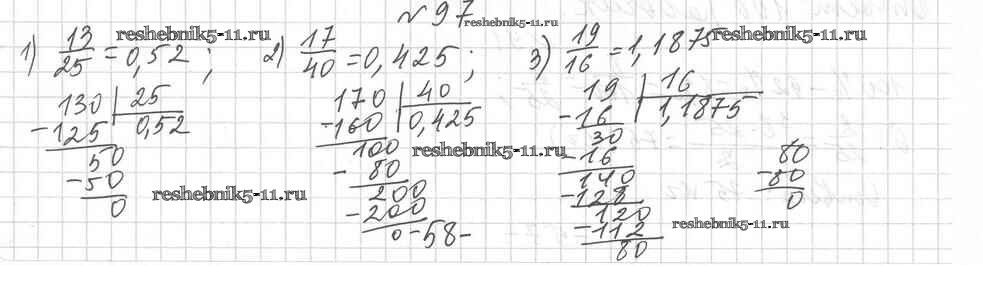 №97
reshebnik5-11.ru
1) 13/25 = 0,52 ; 2) 17/40 = 0,425 ; 3) 19/16 = 1,1875
reshebnik5-11.ru reshebnik5-11.ru
130 | 25
-125 | 0,52
50
-50
0
reshebnik5-11.ru
170 | 40
-160 | 0,425
100
reshebnik5-11.ru
-80
200
-200
0
-58-
19 | 16
-16 | 1,1875
30
-16
140
-128
120
-112
80
80
-80
0
reshebnik5-11.ru